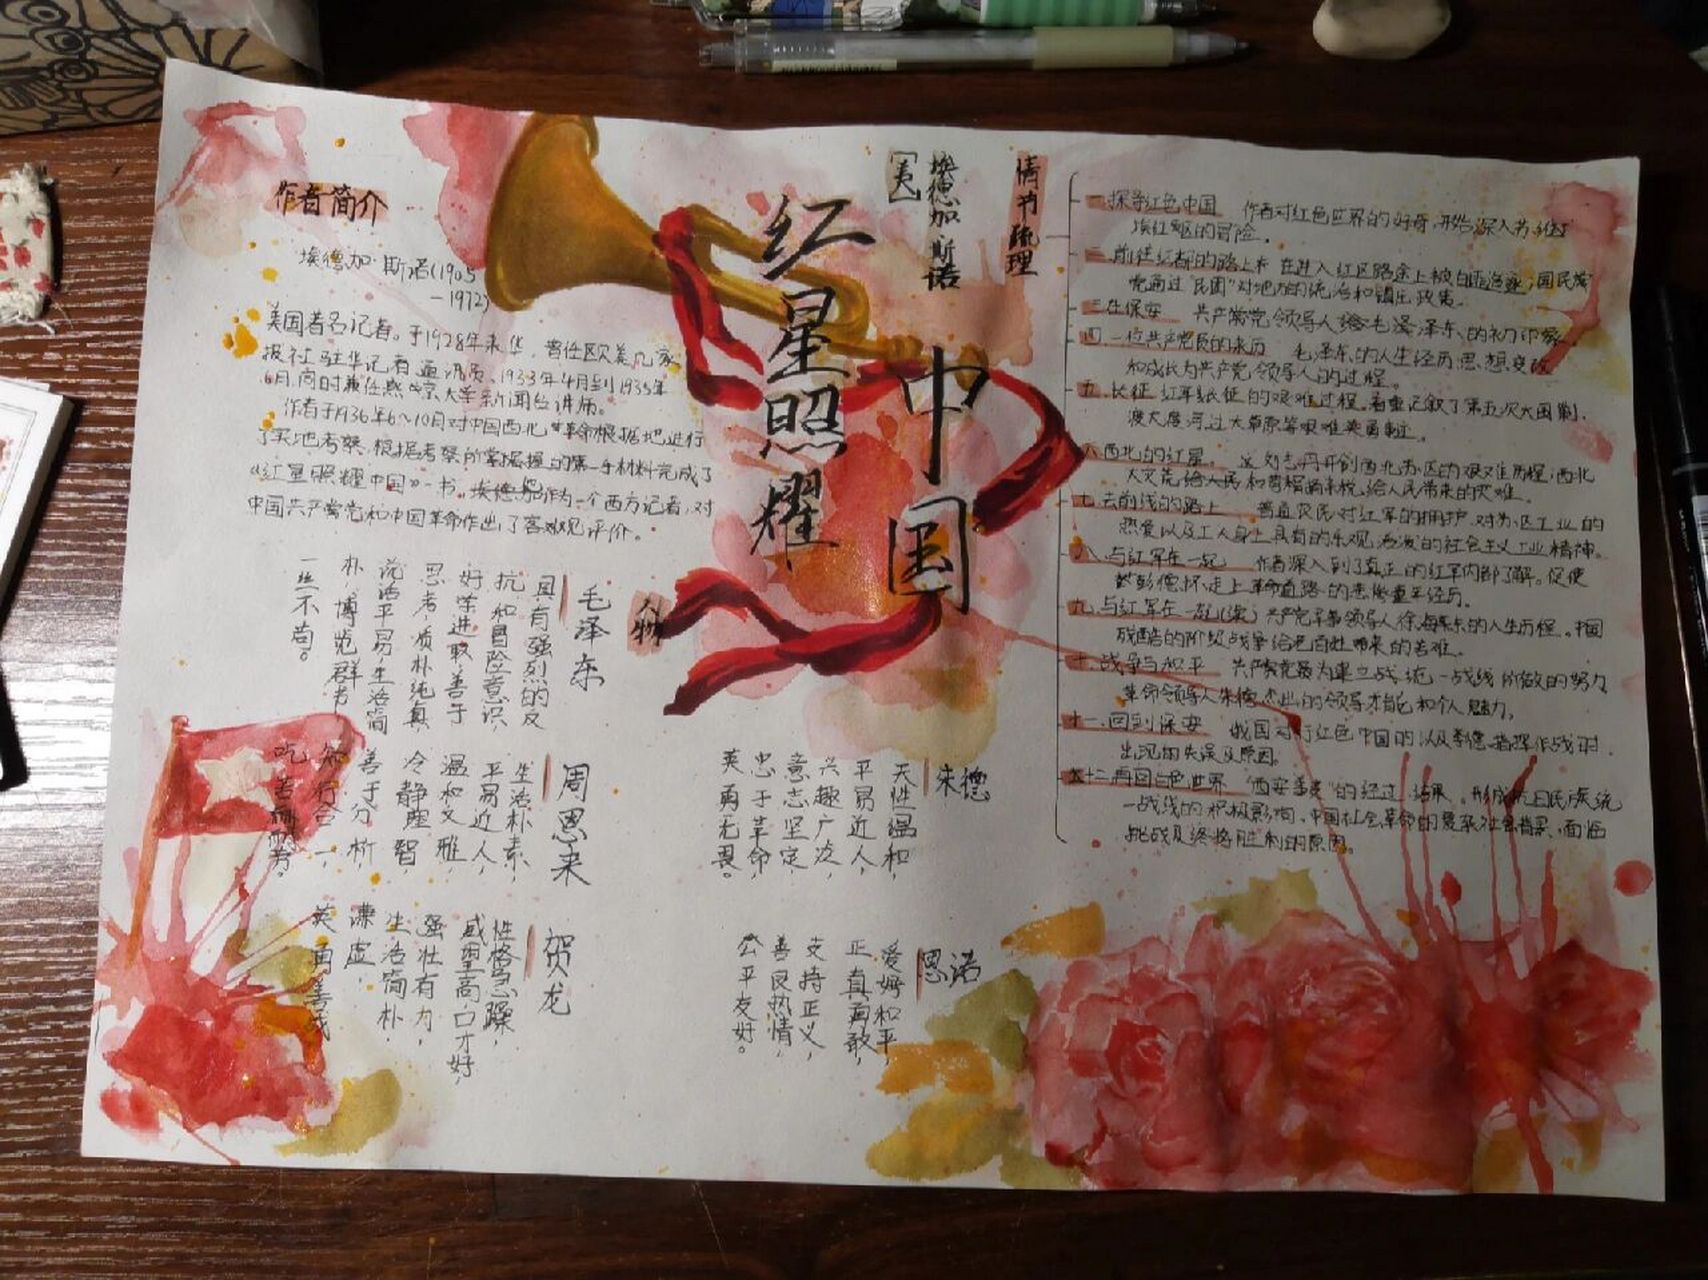 红星照耀
中国
[美]
埃德加·斯诺
作者简介
埃德加·斯诺(1905
-1972)
美国著名记者。于1928年来华，曾任欧美几家
报社驻华记者通讯员、1933年4月到1935年
6月，同时兼任燕京大学新闻台讲师。
作者于1936年6~10月对中国西北革命根据地进行
了实地考察，根据考察所掌握的第一手材料完成了
《红星照耀中国》一书。作为一个西方记者，对
中国共产党和中国革命作出了客观评价。
人物
毛泽东
具有强烈的反
抗和冒险意识
好学进取善于
思考，质朴纯真
说话平易，生活简
朴、博览群书
一丝不苟。
周恩来
生活朴素，
平易近人，
温和文雅，
冷静理智，
善于分析，
知行合一，
吃苦耐劳。
贺龙
性格急躁，
威望高，口才好，
强壮有力，
生活简朴
谦虚
英勇善战
朱德
天性温和，
平易近人，
兴趣广泛，
意志坚定
忠于革命，
英勇无畏。
思诺
爱好和平，
正真勇敢，
支持正义，
善良热情，
公平友好。
情节疏理
一.探寻红色中国 作者对红色世界的好奇，开始深入苏维
埃红区的冒险。
二.前往红都的路上 在进入红区路途上被白匪追逐；国民
党通过“民团”对地方的统治和镇压政策。
三.在保安 共产党领导人毛泽东的初印象
四.一位共产党员的来历 毛泽东的人生经历思想变改
和成长为共产党领导人的过程。
五.长征 红军长征的艰难过程。着重记叙了第五次大围剿，
渡大渡河，过大草原等艰难英勇事迹。
六.西北的红星。 刘志丹开创西北苏区的艰难历程，西北
大灾荒给人民和苛捐杂税给人民带来的灾难。
七.去前线的路上 普通农民对红军的拥护，对苏区工业的
热爱以及工人身上具有的乐观活泼的社会主义工业精神。
八.与红军在一起 作者深入到了真正的红军内部了解。促使
彭德怀走上革命道路的悲惨童年经历。
九.与红军在一起(续) 共产党军事领导人徐海东的人生历程。中国
残酷的阶级战争给老百姓带来的苦难。
十.战争与和平 共产党为建立统一战线所做的努力
革命领导人朱德杰出的领导才能和个人魅力。
十一.回到保安 俄国对红色中国的以及李德指挥作战时
出现的失误及原因。
十二.再回白色世界 “西安事变”的经过，结果。形成抗日民族统
一战线的积极影响，中国社会革命的复杂社会背景，面临
挑战及终将胜利的原因。